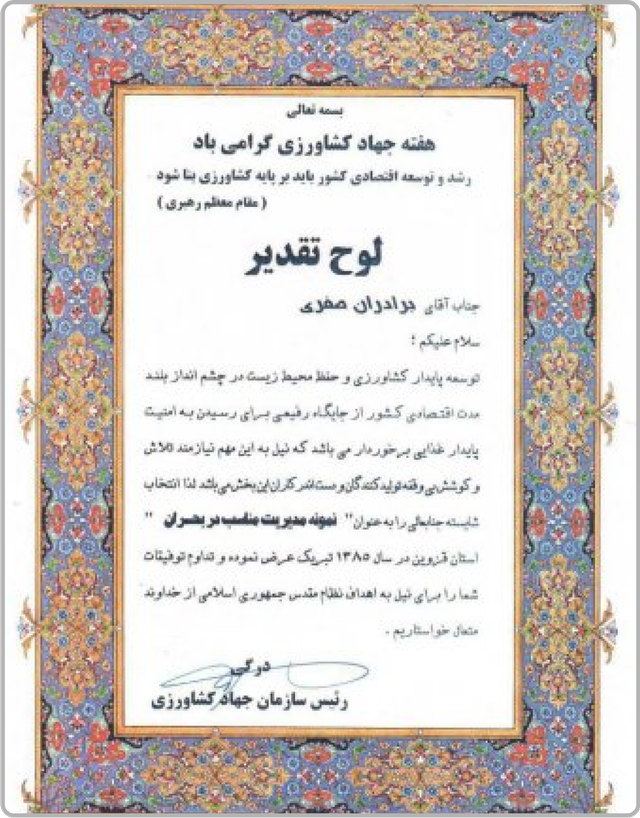 بسمه تعالی
هفته جهاد کشاورزی گرامی باد
رشد و توسعه اقتصادی کشور باید بر پایه کشاورزی بنا شود
( مقام معظم رهبری )
لوح تقدیر
جناب آقای برادران صفری
سلام علیکم ؛
توسعه پایدار کشاورزی و حفظ محیط زیست در چشم انداز بلند
مدت اقتصادی کشور از جایگاه رفیعی برای رسیدن به امنیت
پایدار غذایی برخوردار می باشد که نیل به این مهم نیازمند تلاش
و کوشش بی وقفه تولیدکنندگان و دست اندرکاران این بخش می باشد لذا انتخاب
شایسته جنابعالی را به عنوان " نمونه مدیریت مناسب در بحران "
استان قزوین در سال ۱۳۸۵ تبریک عرض نموده و تداوم توفیقات
شما را برای نیل به اهداف نظام مقدس جمهوری اسلامی از خداوند
متعال خواستاریم .
درگی
رئیس سازمان جهاد کشاورزی